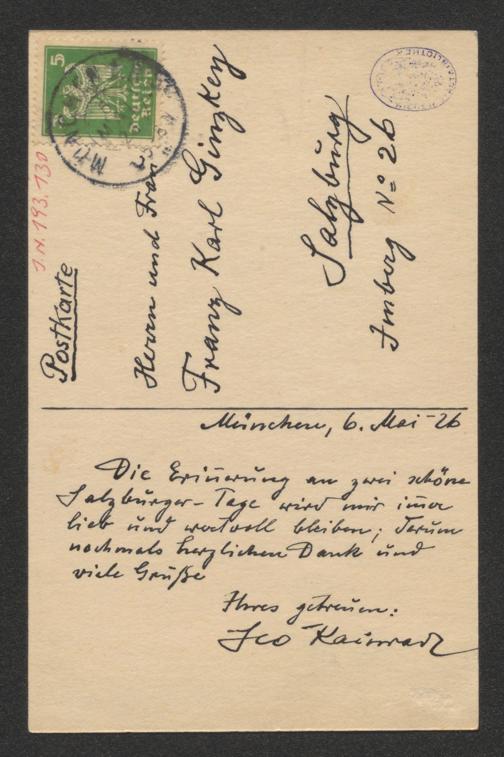 Postkarte
5
Deutsches
Reich
J.N. 193.130
Herrn und Frau
Franz Karl Ginzkey
Salzburg
Imberg No 26
München, 6. Mai 26
Die Erinnerung an zwei schöne
Salzburger-Tage wird mir immer
lieb und wertvoll bleiben; darum
nochmals herzlichen Dank und
viele Grüße
Ihres getreuen:
Leo